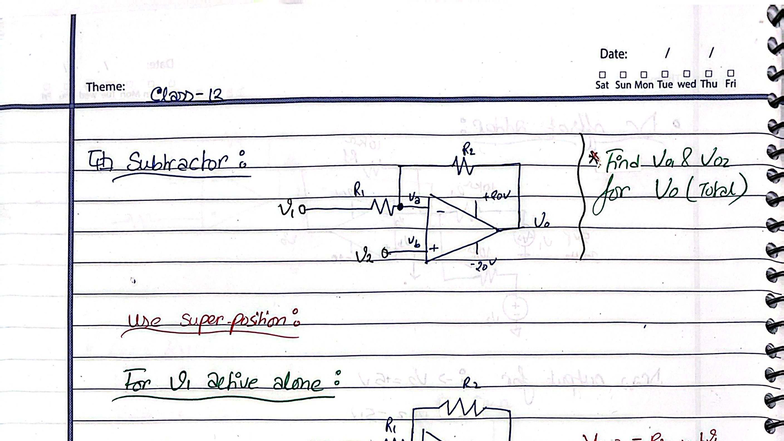 Date: / /
Sat Sun Mon Tue wed Thu Fri
Theme: Class-12
Subtractor:
R2
R1
V1
Va
-
+20V
Vo
V2
Vb
+
-20V
* Find Vo1 & Vo2
for Vo (Total)
Use super-position:
For V1 active alone:
R2
R1